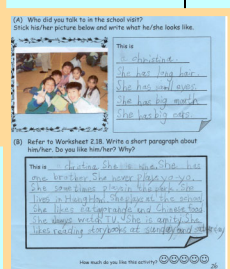 (A) Who did you talk to in the school visit?
Stick his/her picture below and write what he/she looks like.
This is
christina
She has long hair.
She has small eyes.
She has big mouth
She has big ears.
(B) Refer to Worksheet 2.18. Write a short paragraph about
him/her. Do you like him/her? Why?
This is christina She is nine. She has
one brother. She never plays yo-yo.
She sometimes plays in the park. She
lives in Hung Hom. She plays at the school.
She likes eating and Chinese food
She always watch TV. She is She
likes reading storybooks at Sunday and Saturday
How much do you like this activity?
26